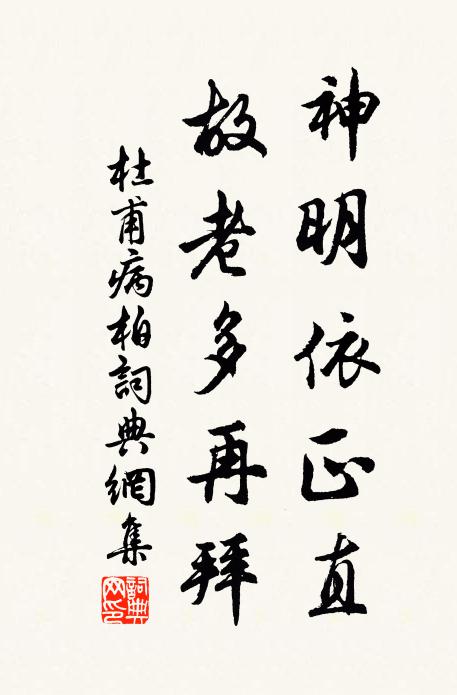 神明依正直
故老多再拜
杜甫病柏詞典網集
詞典網印